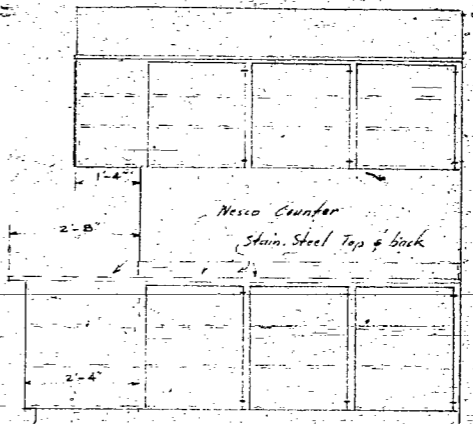 1'-4"
Nesco Counter
2'-8"
Stain. Steel Top & back
2'-4"